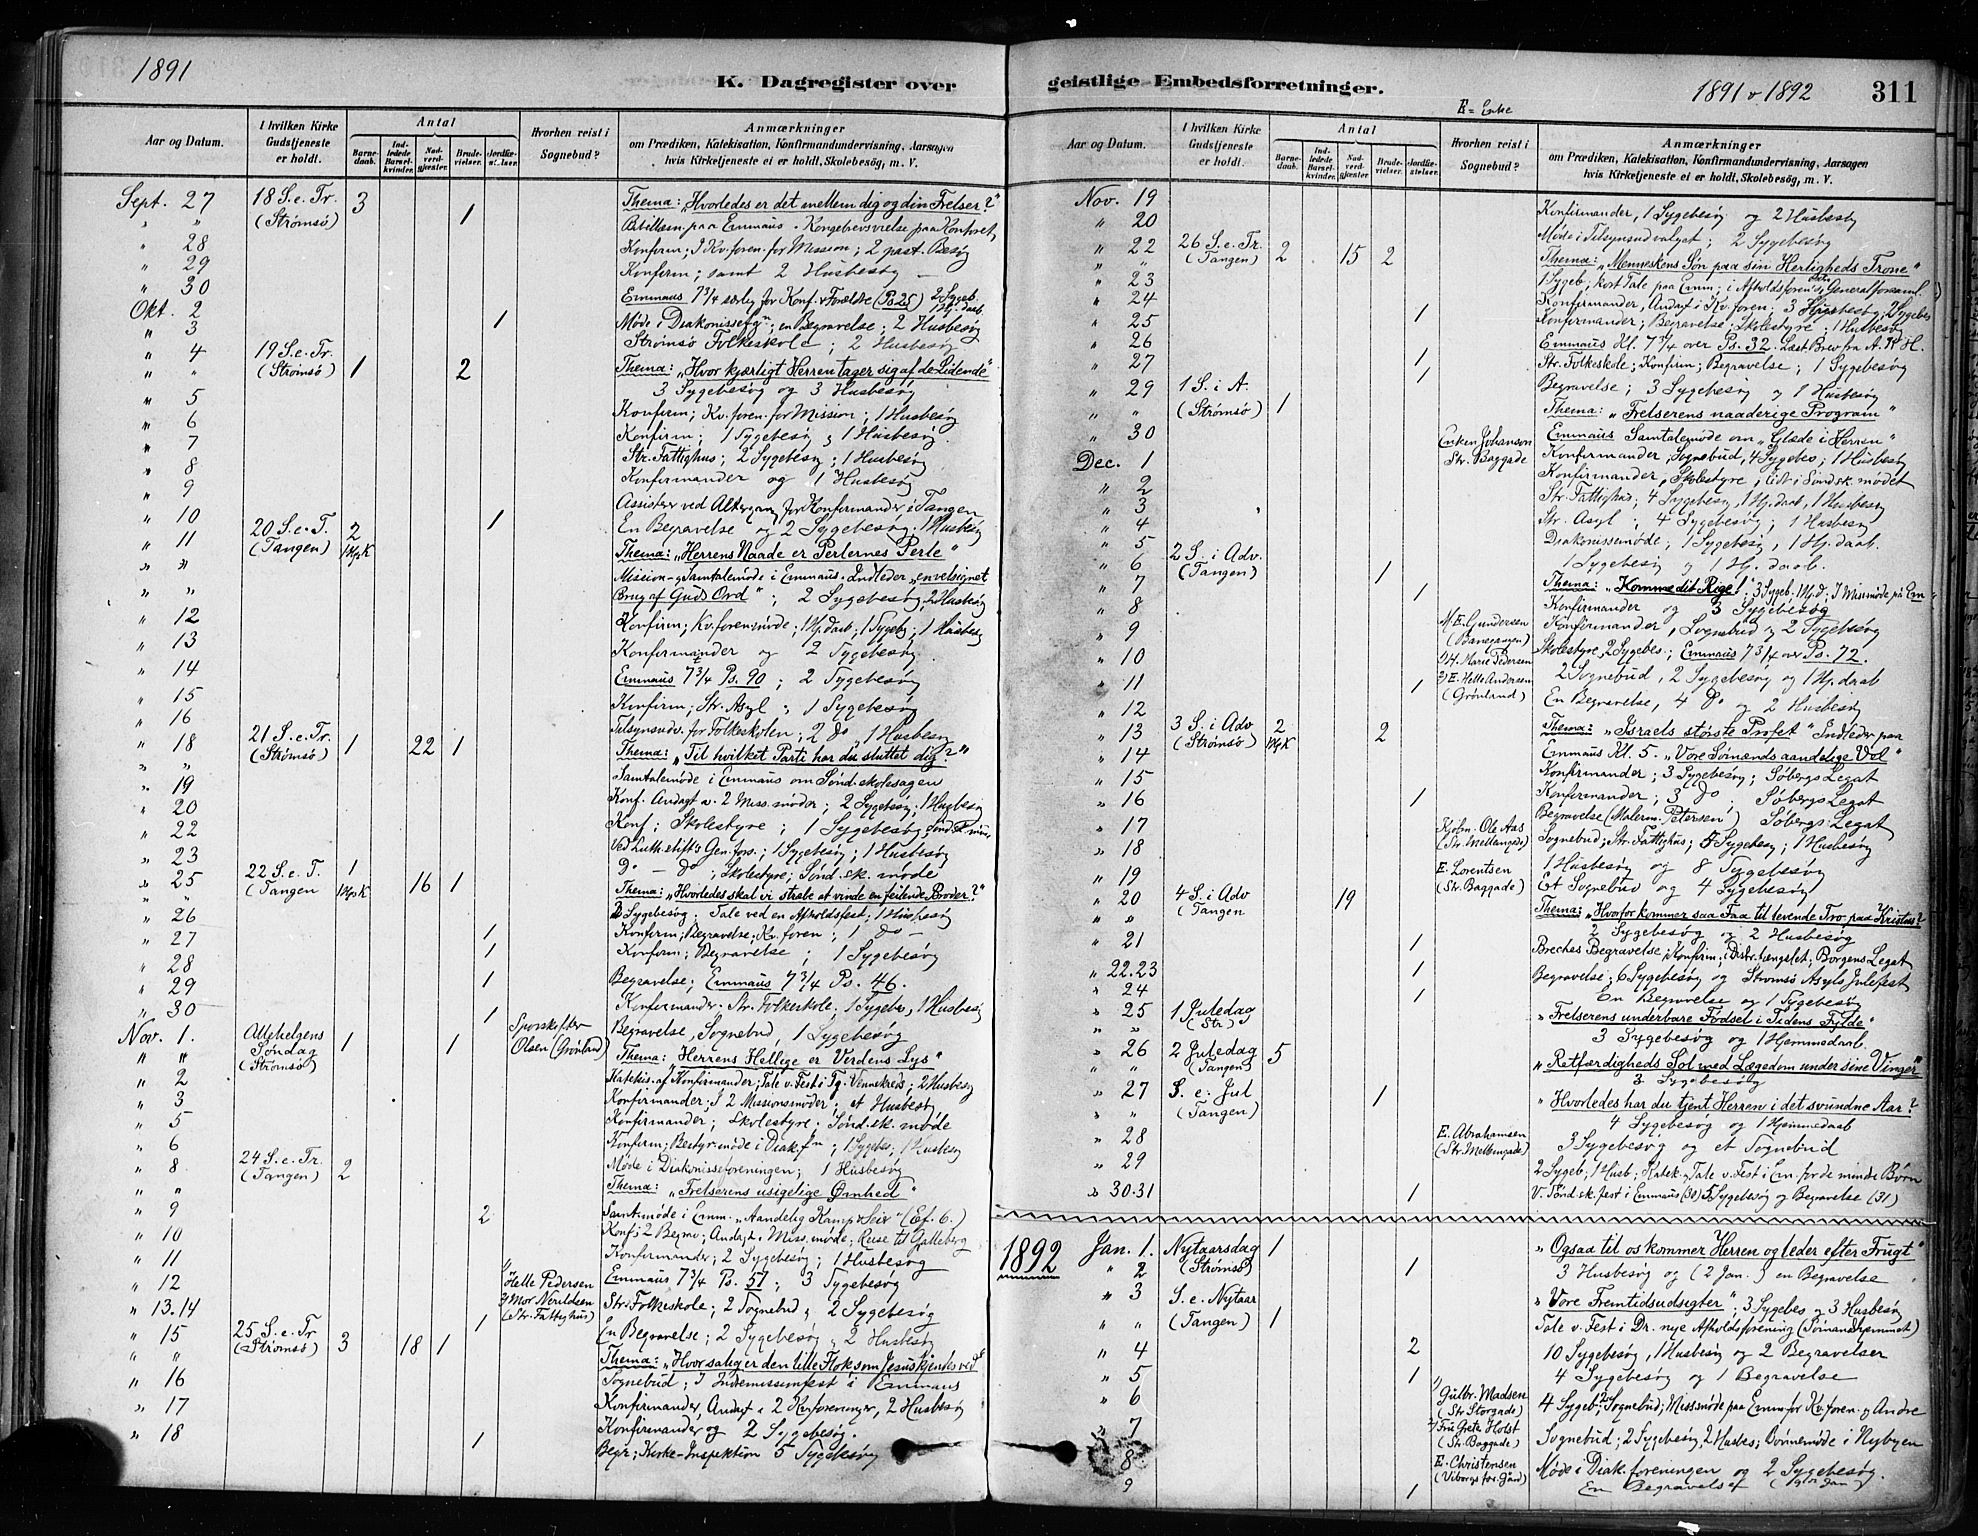 1891
K. Dagregister over
Aar og Datum.
I hvilken Kirke Gudstjeneste er holdt.
Antal
Barnedaab.
Indledede Barselkvinder.
Nadverdgjester.
Brudevielser.
Jordfæstelser.
Hvorhen reist i Sognebud?
Anmærkninger
om Prædiken, Katekisation, Konfirmandundervisning, Aarsagen
hvis Kirketjeneste ei er holdt, Skolebesøg, m. V.
Sept. 27 18 S. e. Tr. (Strømsø) 3 1 Thema: "Hvorledes er det mellem dig og din Frelser?"
" " Bibellæsn. paa Emmaus
" 28 Konfirm; I Kv. foren. for Mission; 2 past. Besøg
" 29 Konfirm; samt 2 Husbesøg
" 30 Emmaus 7 3/4 særlig for Konf. & Forældre (Ps 25) 2 Sygeb.
Okt. 2 1 en Begravelse; 2 Husbesøg
" 3 Strømsø Folkeskole; 2 Husbesøg
" 4 19 S. e. Tr. (Strømsø) 1 2 Thema: "Hvor kjærligt Herren tager sig af de Lidende"
" " 3 Sygebesøg og 3 Husbesøg
" 5 Konfirm; Kv. foren. for Mission; 1 Husbesøg
" 6 Konfirm; 1 Sygebesøg & 1 Husbesøg
" 7 Str. Fattighus; 2 Sygebesøg; 1 Husbesøg
" 8 Konfirmander og 1 Husbesøg
" 9 Assister ved Altergang for Konfirmander i Tangen
" 10 1 En Begravelse og 2 Sygebesøg, 1 Husbesøg
" 11 20 S. e. T. (Tangen) 2 Thema: "Herrens Naade er Perlernes Perle"
" " Mission- & Samtalemøde i Emmaus. Indleder "en velsignet
" " Brug af Guds Ord"; 2 Sygebesøg, 2 Husbesøg
" 12 Konfirm; Kv. forensmøde; 1 Hj. daab; 1 Sygeb; 1 Husbesøg
" 13 Konfirmander og 2 Sygebesøg
" 14 Emmaus 7 3/4 Ps. 90; 2 Sygebesøg
" 15 Konfirm; Str. Asyl; 1 Sygebesøg
" 16 Tilsynsudv. for Folkeskolen; 2 Do, 1 Husbesøg
" 18 21 S. e. Tr. (Strømsø) 1 22 1 Thema: "Til hvilket Parti har du sluttet dig?"
" " Samtalemøde i Emmaus om Sønd. skolesagen
" 19 Konf. Andagt v. 2 Miss. møder; 2 Sygebesøg; 1 Husbesøg
" 20 Konf; Skolestyre; 1 Sygebesøg
" 22 Ved Luth. stift's Gen. fors.; 1 Sygebesøg; 1 Husbesøg
" 23 Do — Do; Skolestyre; Sønd. sk. møde
" 25 22 S. e. T. (Tangen 1 16 1 Thema: "Hvorledes skal vi stræbe at vinde en feilende Broder?"
" " Sygebesøg. Tale ved en Afholdsfest, 1 Husbesøg
" 26 Konfirm; Begravelse; Kv. foren; 1 Do —
" 27 1 Konfirm; Begravelse, 1 Sygebesøg
" 28 1
" 29 1 Begravelse; Emmaus 7 3/4 Ps. 46.
" 30 Konfirmander. Str. Folkeskole, 1 Sygebes, 1 Husbesøg
Nov. 1. Allehelgens Søndag (Strømsø) 1 1 1 Olsen (Grønland) Begravelse, Sognebud, 1 Sygebesøg
" " Thema: "Herrens Hellige er Verdens Lys"
" 2 Katekis. af Konfirmander; Tale v. Fest i Tg. Vennekreds; 2 Husbesøg
" 3 Konfirmander; I 2 Missionsmøder; et Husbesøg
" 5 Konfirmander; Skolestyre; Sønd. sk. møde
" 6 Konfirm; Bestyr. møde i Diak. fn; 1 Sygebes; 1 Husbesøg
" 8 24 S. e. Tr. (Tangen) 2 Møde i Diakonisseforeningen; 1 Husbesøg
" " Thema: "Frelserens usigelige Ømhed"
" 9 2 Samt. møde i Emm. "Aandelig Kamp & Seir" (Ef. 6.)
" 10 Konf; 2 Begrav; Andagt v. Miss. møde; Reise til Galleberg
" 11 Konfirmander; 2 Sygebesøg; 1 Husbesøg
" 12 1/ Helle Pedersen Emmaus 7 3/4 Ps. 51; 3 Sygebesøg
" 13.14 1 (Str. Fattighus) Str. Folkeskole; 2 Sognebud, 2 Sygebesøg
" 15 25 S. e. Tr. (Strømsø) 3 18 1 En Begravelse; 2 Sygebesøg, 2 Husbesøg
" " Thema: "Hvor salig er den lille Flok som Jesus kjendes ved"
" 16 Sognebud; I Indremissionsfest i Emmaus
" 17 Konfirmander, Andagt i 2 Kv. foreninger, 2 Husbesøg
" 18 Konfirmander og 2 Sygebesøg.
1 Begr; Kirke-Inspektion 5 Sygebesøg
geistlige Embedsforretninger.
E = Enke
1891 & 1892
311
Aar og Datum.
I hvilken Kirke Gudstjeneste er holdt.
Antal
Barnedaab.
Indledede Barselkvinder.
Nadverdgjester.
Brudevielser.
Jordfæstelser.
Hvorhen reist i Sognebud?
Anmærkninger
om Prædiken, Katekisation, Konfirmandundervisning, Aarsagen
hvis Kirketjeneste ei er holdt, Skolebesøg, m. V.
Nov. 19 Konfirmander, 1 Sygebesøg og 2 Husbesøg
" 20 Møde i Tilsynsudvalget; 2 Sygebesøg
" 22 26 S. e. Tr. (Tangen) 2 15 2 Thema: "Menneskens Søn paa sin Herligheds Trone"
" " 1 Sygeb; kort Tale paa Emm; i Afholdsforen's Generalforsaml.
" 23 Konfirmander, Andagt i Kv. foren; 3 Husbesøg; 2 Sygebes
" 24
" 25 1 Konfirmander; Begravelse; Skolestyre; 1 Husbesøg
" 26 Emmaus Kl. 7 3/4 over Ps. 32. Læst Brev fra A. H.
" 27 1 Str. Folkeskole; Konfirm; Begravelse; 1 Sygebesøg
" 29 1 S. i A. (Strømsø) 1 1 Begravelse; 3 Sygebesøg og 1 Husbesøg
" " Thema: "Frelserens naaderige Program"
" 30 Enken Johansen Emmaus Samtalemøde om "Glæde i Herren"
Dec. 1 Str. Baggade Konfirmander, Sognebud, 4 Sygebes; 1 Husbesøg
" 2 Konfirmander, Skolestyre, Lidt i Sønd. sk. mødet
" 3 Str. Fattighus; 4 Sygebesøg, 1 Hj. daab, 1 Husbesøg
" 4 Str. Asyl; 4 Sygebesøg; 1 Husbesøg
" 5 Diakonissemøde; 1 Sygebesøg, 1 Hj. daab.
" 6 2 S. i Adv. (Tangen) 1 1 Sygebesøg og 1 Hj. daab.
" 7 1 Thema: "Komme dit Rige!"; 3 Sygeb. 1 Hj. d; I Missmøde på Em
" 8 Konfirmander og 3 Sygebesøg
" 9 E. Gundersen (Banegangen) Konfirmander, Sognebud & 2 Sygebesøg
" 10 1/ H. Marie Pedersen Skolestyre, 2 Sygebes; Emmaus 7 3/4 over Ps. 72.
" 11 1 2/ E. Helle Andersen (Grønland) 2 Sognebud, 2 Sygebesøg og 1 Hj. daab
" 12 En Begravelse, 4 Do og 2 Husbesøg
" 13 3 S. i Adv (Strømsø) 2 2 Thema: "Israels største Profet" Indleder paa
" 14 Emmaus Kl. 5. "Vore Sømænds aandelige Vel"
" 15 Konfirmander; 3 Sygebesøg; Søbergs Legat
" 16 1 Konfirmander; 3 Do; Søbergs Legat
" 17 Kjøbm. Ole Aas Begravelse (Malerm. Petersen) Søbergs Legat
" 18 Sognebud; Str. Fattighus; 5 Sygebesøg, 1 Husbesøg
" 19 E. Lorentsen (Str. Baggade) 1 Husbesøg og 8 Sygebesøg
" 20 4 S. i Adv (Tangen 19 Et Sognebud og 4 Sygebesøg
" " Thema: "Hvorfor kommer saa Faa til levende Tro paa Kristus?"
2 Sygebesøg og 2 Husbesøg
" 21 1 Breches Begravelse, Konfirm; i Distr. fængslet; Borgens Legat
" 22.23 1 Begravelse; 6 Sygebesøg og Strømsø Asyls Julefest
" 24 1 En Begravelse og 1 Sygebesøg
" 25 1 Juledag (Str.) "Frelserens underbare Fødsel i Tidens Fylde"
" " 3 Sygebesøg og 1 Hjemmedaab.
" 26 2 Juledag (Tangen) 5 "Retfærdigheds Sol med Lægedom under sine Vinger"
" " 3 Sygebesøg
" 27 S. e. Jul (Tangen) 1 "Hvorledes har du tjent Herren i det svundne Aar?"
" " 4 Sygebesøg og 1 Hjemmedaab
" 28 E. Abrahamsen 3 Sygebesøg og et Sognebud
" 29 2 Sygeb, 1 Husb; Katek. & Tale v. Fest i Em. for de mindre Børn
" 30.31 1 V. Sønd. sk. fest i Emmaus (30) 5 Sygebesøg og Begravelse (31)
1892 Jan. 1. Nytaarsdag (Strømsø) 1 "Ogsaa til os kommer Herren og leder efter Frugt"
" 2 1 3 Husbesøg og (2 Jan.) en Begravelse
" 3 S. e. Nytaar (Tangen) 1 "Vore Fremtidsudsigter"; 3 Sygebes og 3 Husbesøg
" " Tale v. Fest i Dr. nye Afholdsforening (Sømandshjemmet)
" 4 2 10 Sygebesøg, 1 Husbesøg og 2 Begravelser
" 5 1 4 Sygebesøg og 1 Begravelse
" 6 1/ Gulbr. Madsen (Str Storgade) 4 Sygeb; 2 Sognebud; Missmøde paa Emm for Kv. foren. & Andre
" 7 2/ Fru Grete Holst (Str. Baggade) Sognebud; 2 Sygebesøg, 2 Husbes; Bønnemøde i Nybyen
" 8 E. Christensen (Viborgs for. Gård) Møde i Diak. foreningen og 2 Sygebesøg.
9 1 En Begravelse (9de Jan)